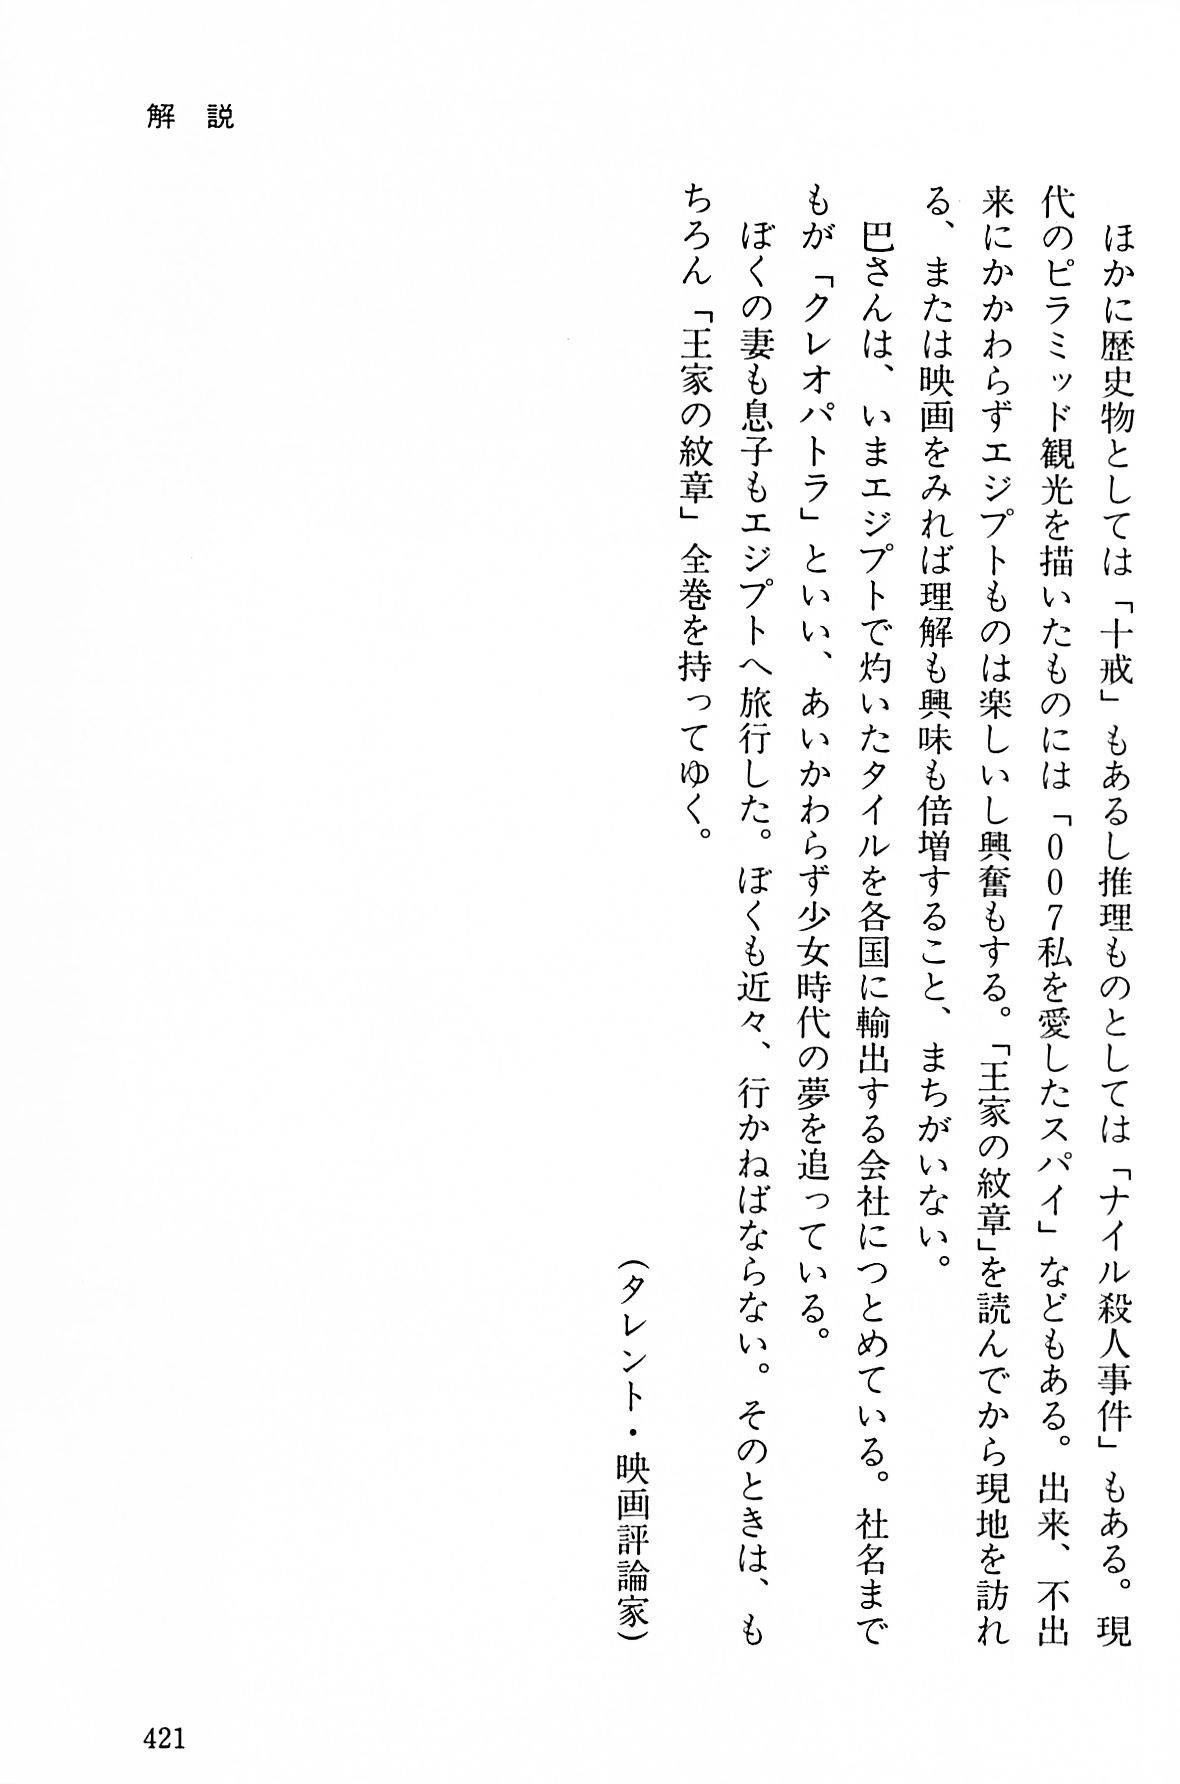 解説
ほかに歴史物としては「十戒」もあるし推理ものとしては「ナイル殺人事件」もある。現
代のピラミッド観光を描いたものには「007私を愛したスパイ」などもある。出来、不出
来にかかわらずエジプトものは楽しいし興奮もする。「王家の紋章」を読んでから現地を訪れ
る、または映画をみれば理解も興味も倍増すること、まちがいない。
巴さんは、いまエジプトで灼いたタイルを各国に輸出する会社につとめている。社名まで
もが「クレオパトラ」といい、あいかわらず少女時代の夢を追っている。
ぼくの妻も息子もエジプトへ旅行した。ぼくも近々、行かねばならない。そのときは、も
ちろん「王家の紋章」全巻を持ってゆく。
(タレント・映画評論家)
421